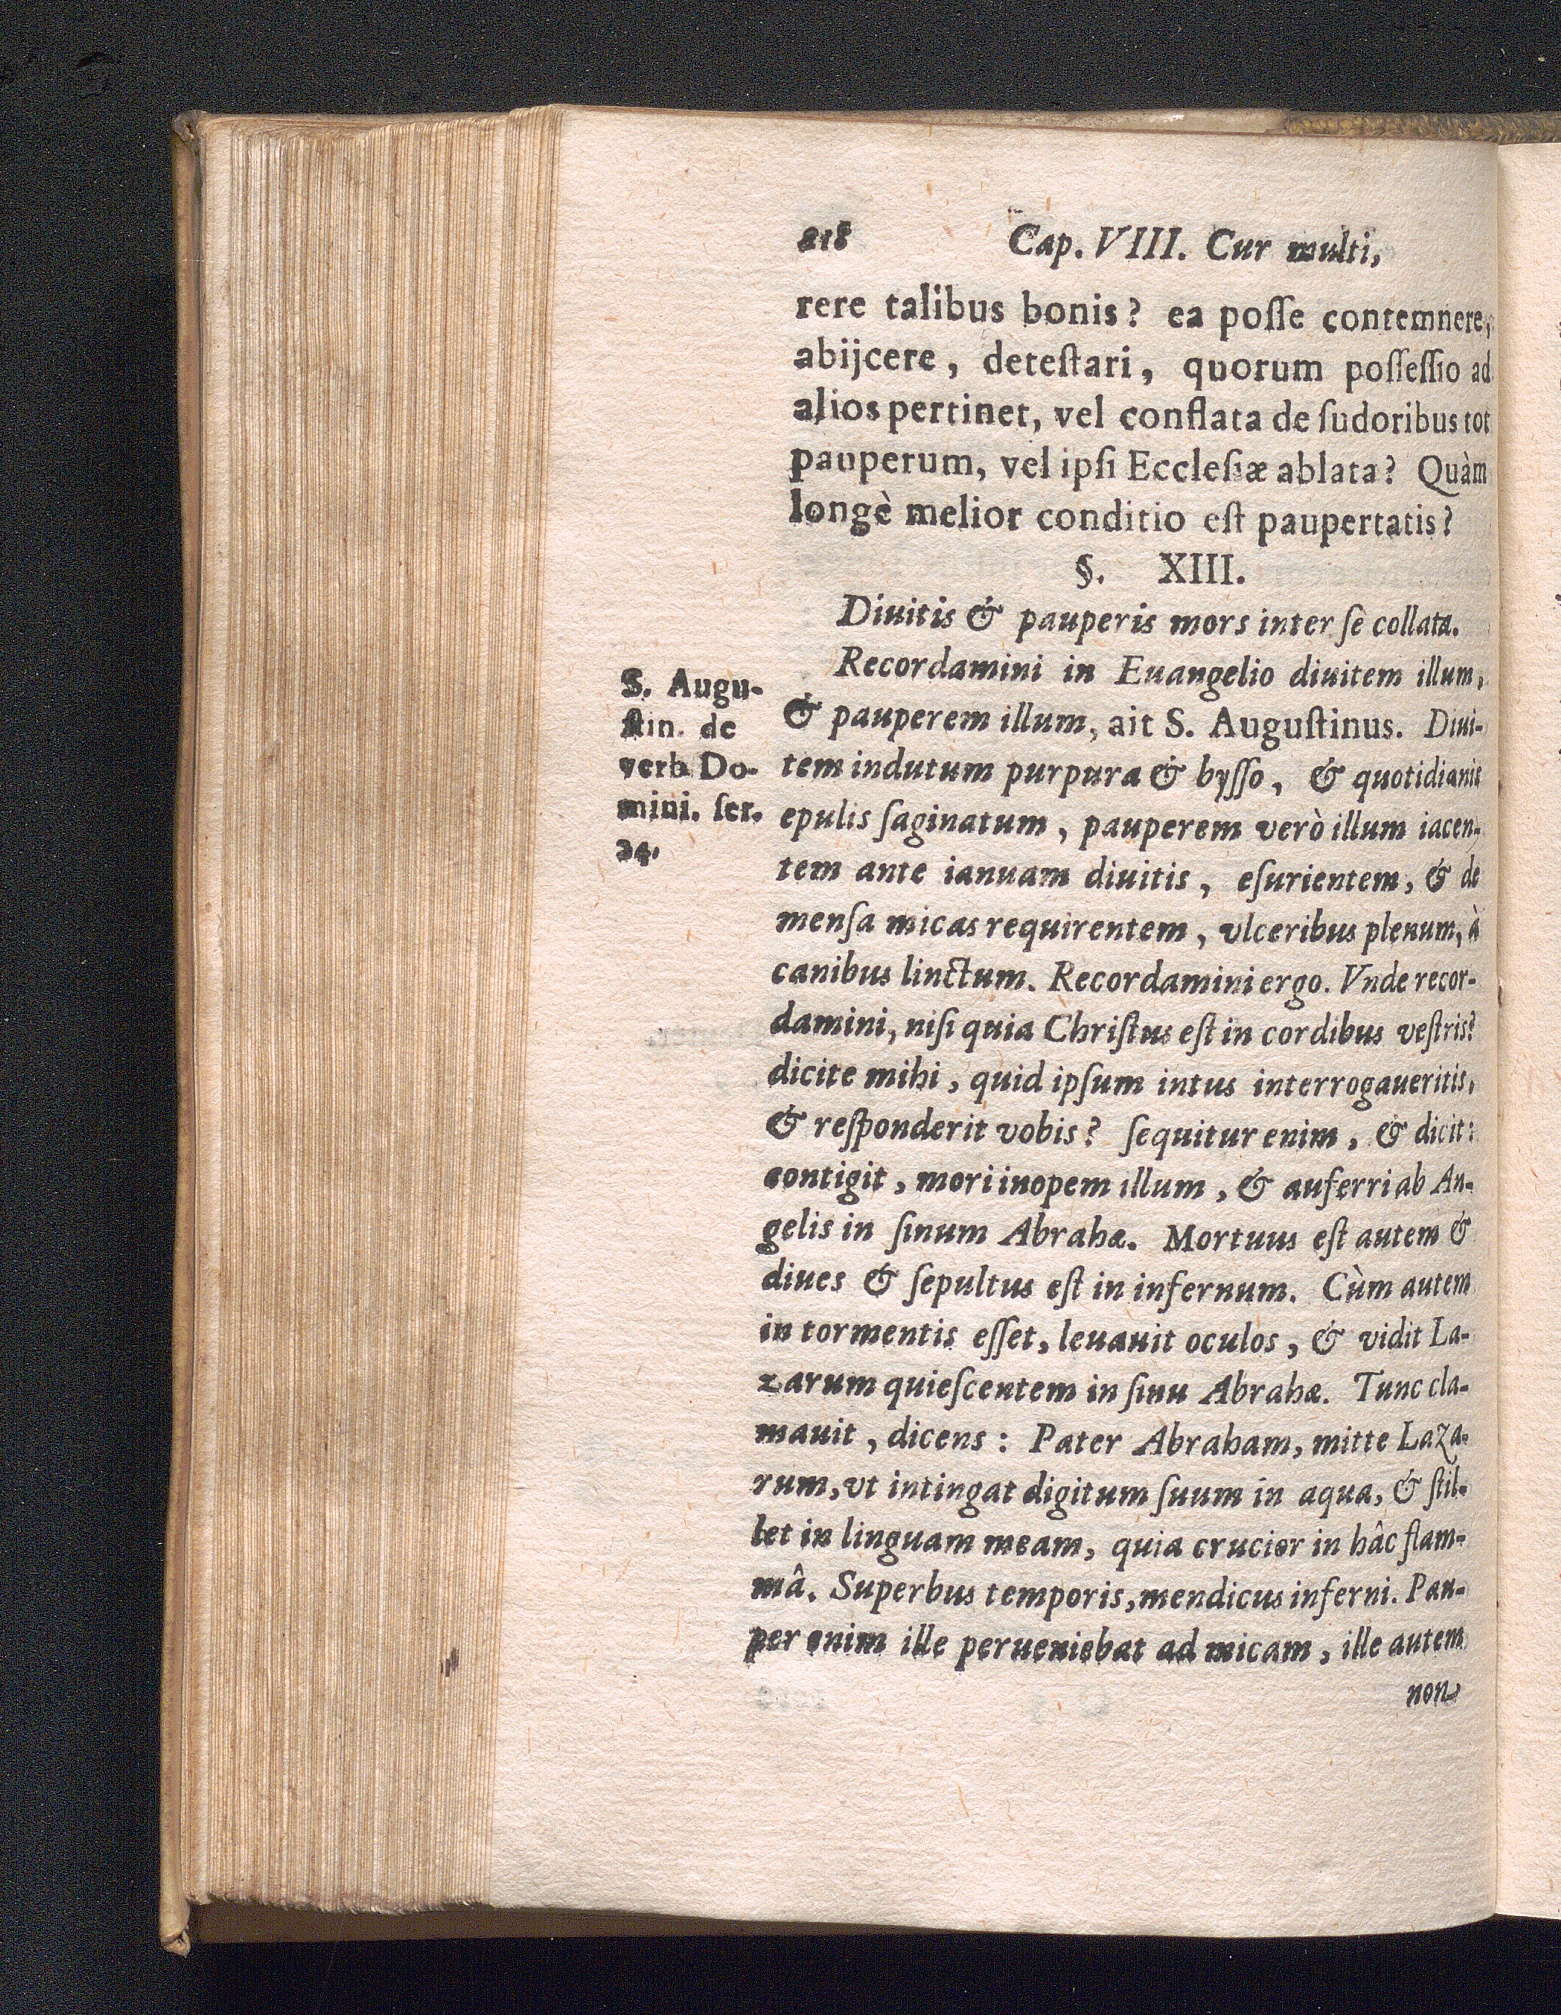 218 Cap. VIII. Cur multi,
rere talibus bonis? ea poſſe contemnere,
abijcere, deteſtari, quorum poſſeſſio ad
alios pertinet, vel conflata de ſudoribus tot
pauperum, vel ipſi Eccleſiæ ablata? Quàm
longè melior conditio eſt paupertatis?
§. XIII.
Diuitis & pauperis mors inter ſe collata.
Recordamini in Euangelio diuitem illum,
& pauperem illum, ait S. Auguſtinus. Diui-
tem indutum purpura & byſſo, & quotidianis
epulis ſaginatum, pauperem verò illum iacen-
tem ante ianuam diuitis, eſurientem, & de
menſa micas requirentem, vlceribus plenum, à
canibus linctum. Recordamini ergo. Vnde recor-
damini, niſi quia Chriſtus eſt in cordibus veſtris?
dicite mihi, quid ipſum intus interrogaueritis,
& reſponderit vobis? ſequitur enim, & dicit:
contigit, mori inopem illum, & auferri ab An-
gelis in ſinum Abrahæ. Mortuus eſt autem &
diues & ſepultus eſt in infernum. Cùm autem
in tormentis eſſet, leuauit oculos, & vidit La-
zarum quieſcentem in ſinu Abrahæ. Tunc cla-
mauit, dicens: Pater Abraham, mitte Laza-
rum, vt intingat digitum ſuum in aqua, & ſtil-
let in linguam meam, quia crucior in hâc flam-
mâ. Superbus temporis, mendicus inferni. Pau-
per enim ille perueniebat ad micam, ille autem
non
S. Augu-
ſtin. de
verb. Do-
mini. ſer.
24.